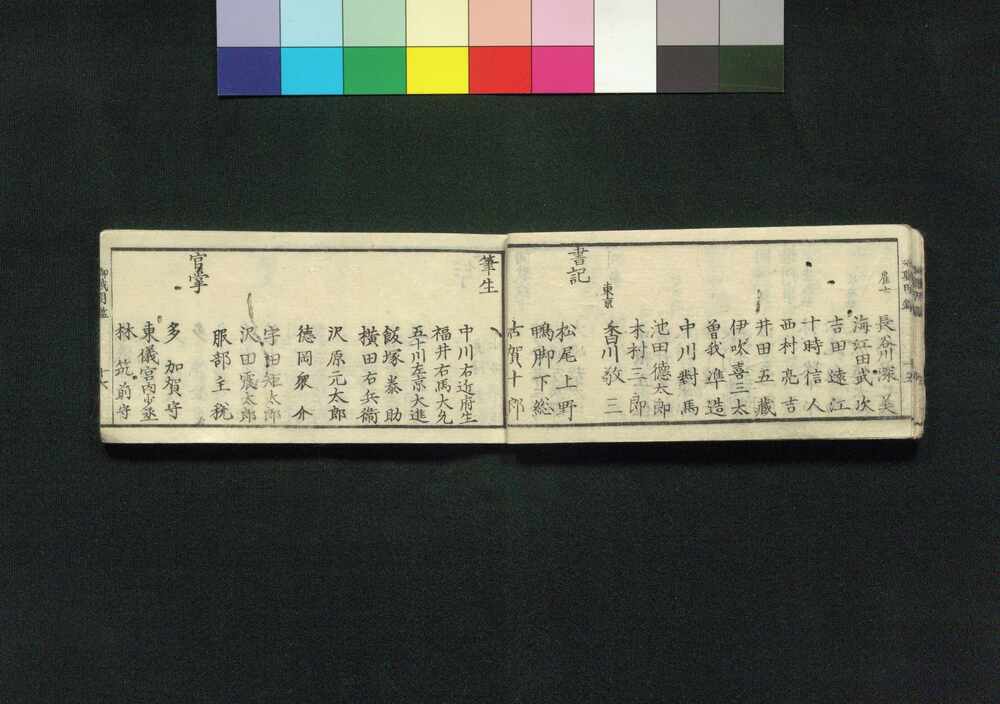 長谷川深美
海江田武次
吉田遠江
十時信人
西村亮吉
井田五藏
伊吹喜三太
曽我準造
中川對馬
池田徳太郎
木村三郎
東京
香川敬三
書記
松尾上野
鴨脚下総
古賀十郎
筆生
中川右近府生
福井右馬大允
五十川左京大進
飯塚泰助
横田右兵衞
沢原元太郎
徳岡衆介
宇田矩太郎
沢田震太郎
服部主税
官掌
多加賀守
東儀宮内少丞
林筑前守